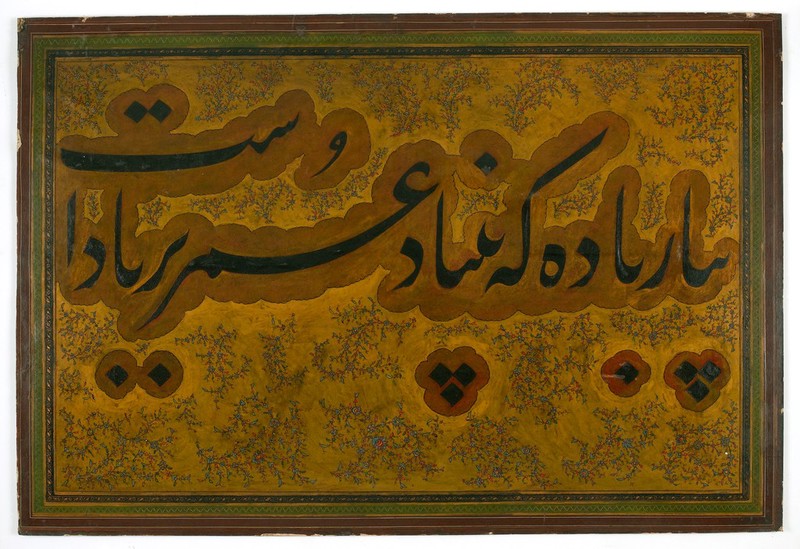 بیار باده که بنیاد عُمر بر باد است